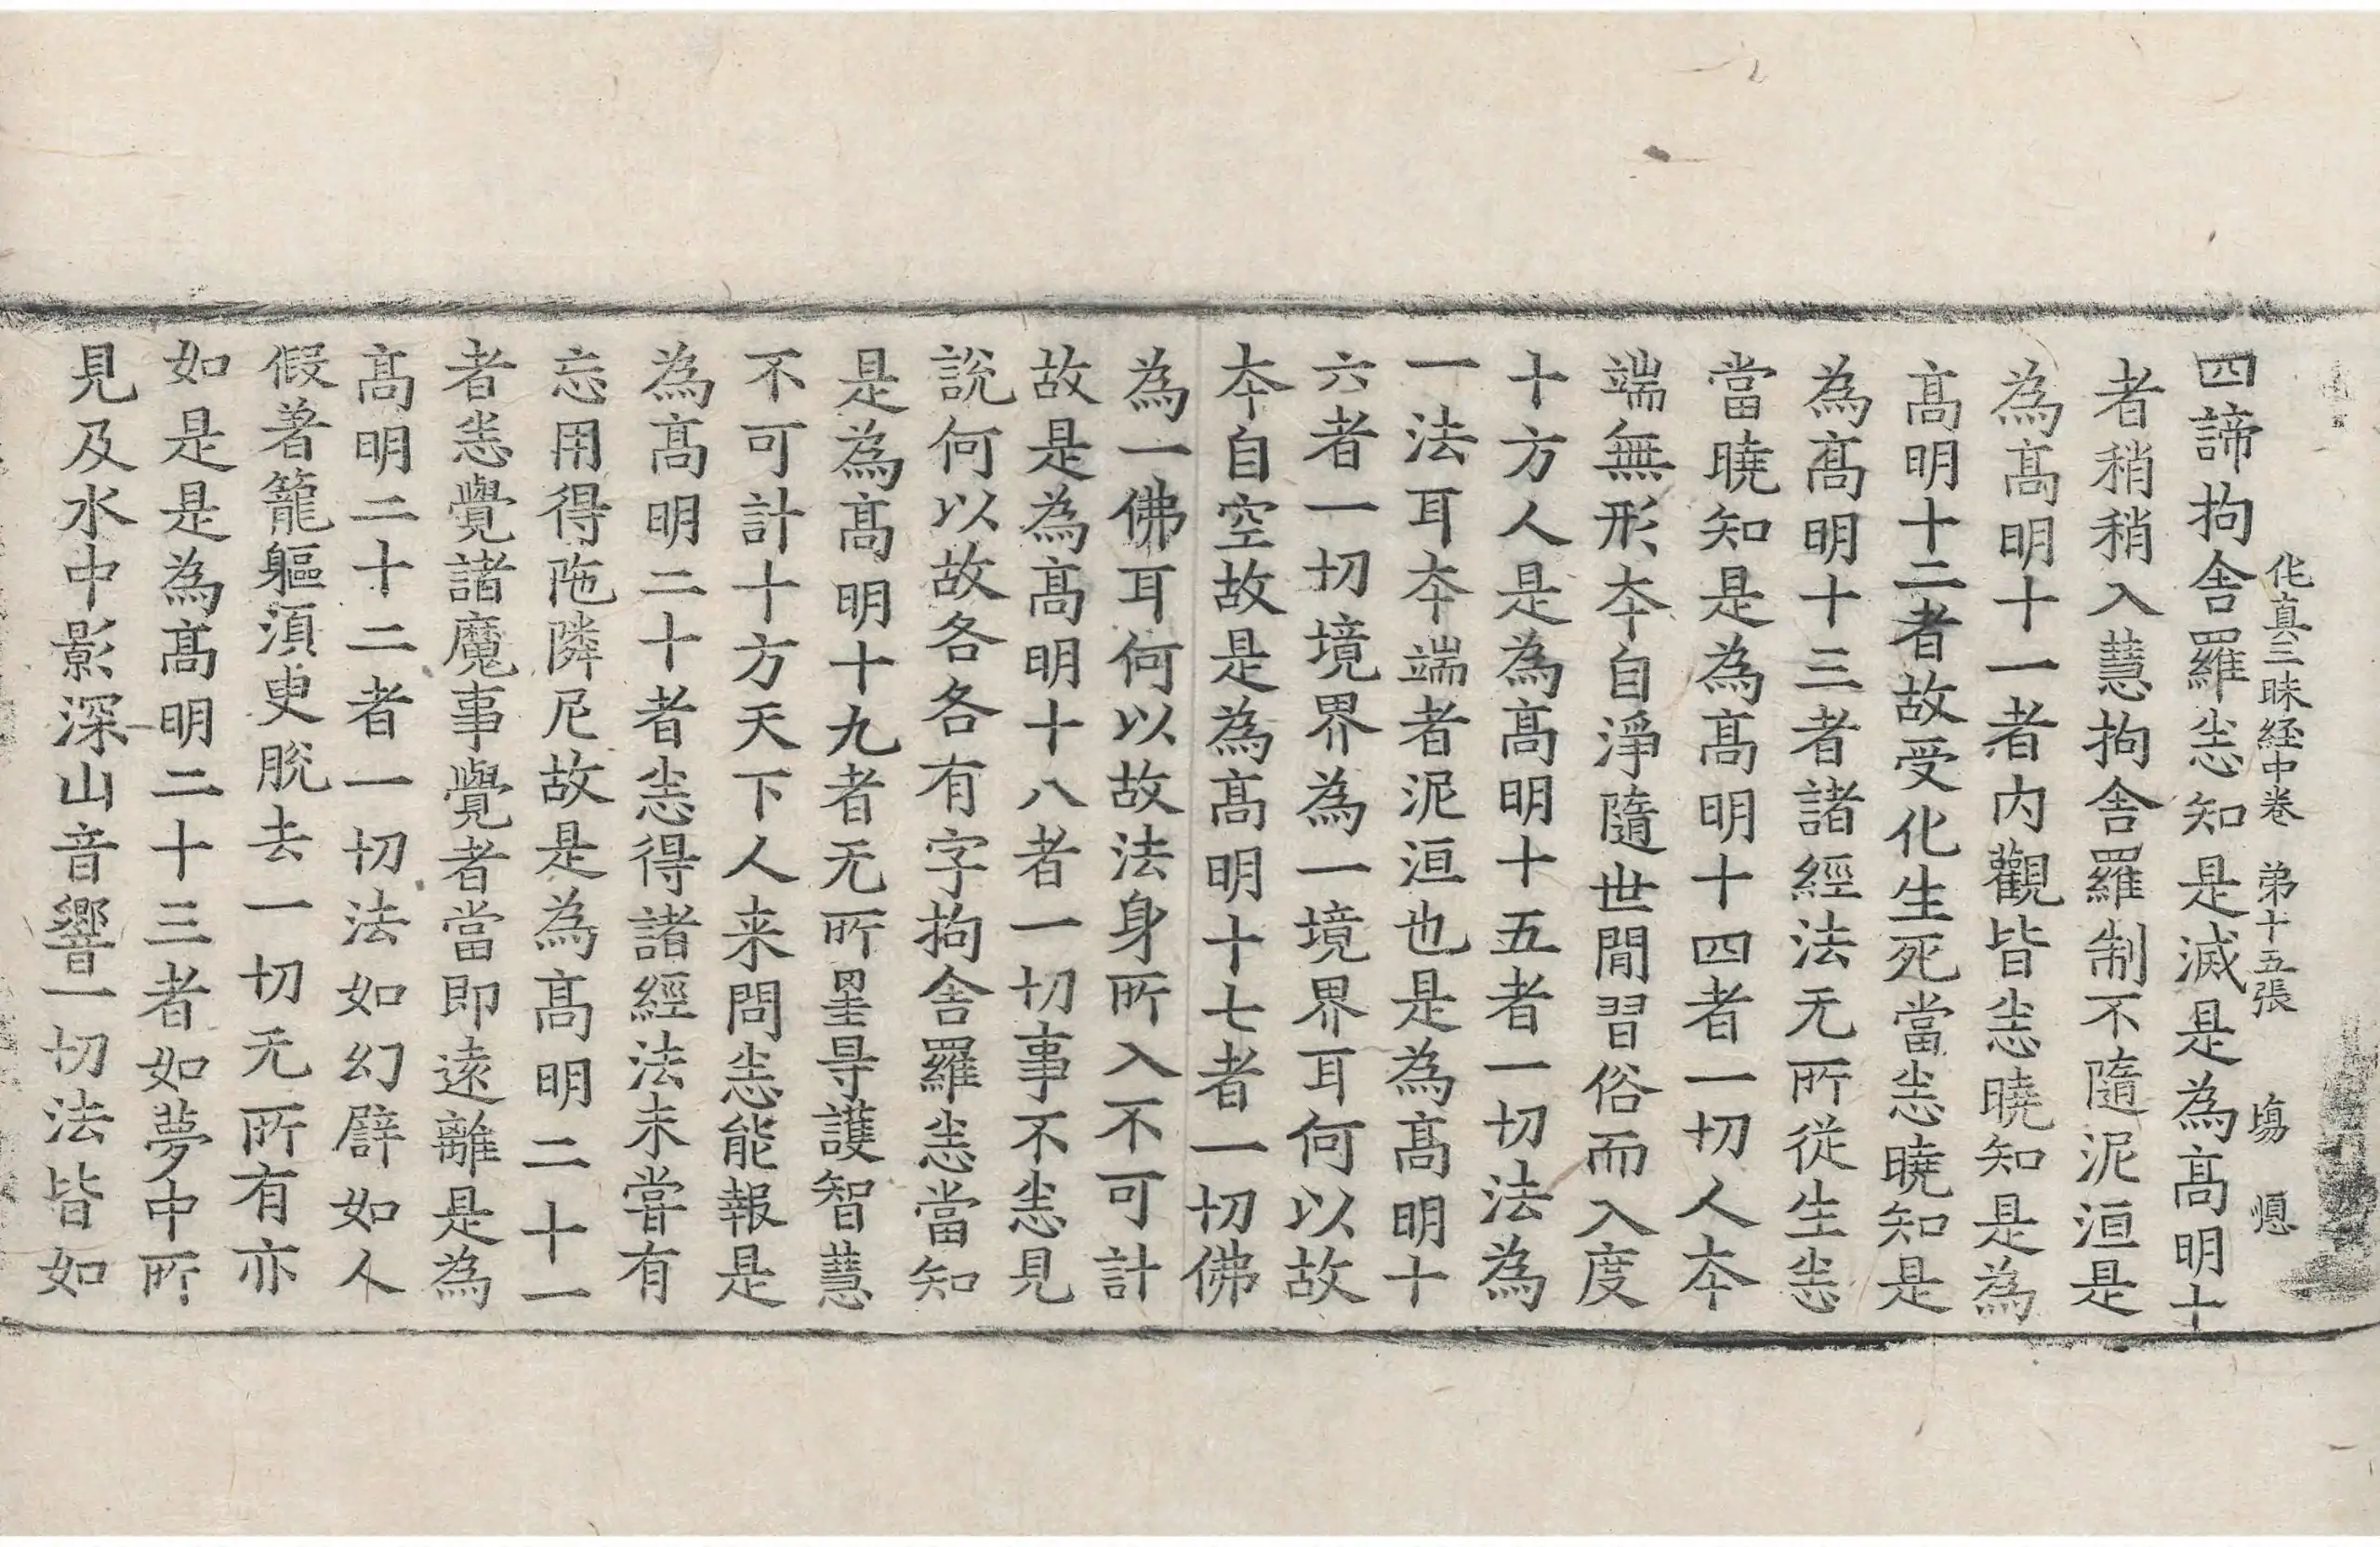 伅真三昧経中卷　弟十五張　塲　愳
四諦拘舍羅恙知是滅是為髙明十
者稍稍入慧拘舍羅制不隨泥洹是
為髙明十一者內觀皆恙曉知是為
髙明十二者故受化生死當恙曉知是
為髙明十三者諸經法无所從生恙
當曉知是為髙明十四者一切人夲
端無形夲自淨隨世閒習俗而入度
十方人是為髙明十五者一切法為
一法耳夲端者泥洹也是為髙明十
六者一切境界為一境界耳何以故
夲自空故是為髙明十七者一切佛
為一佛耳何以故法身所入不可計
故是為髙明十八者一切事不恙見
說何以故各各有字拘舍羅恙當知
是為髙明十九者无所罣㝵護智慧
不可計十方天下人来問恙能報是
為髙明二十者恙得諸經法未甞有
忘用得陁隣尼故是為髙明二十一
者恙覺諸魔事覺者當即遠離是為
髙明二十二者一切法如幻辟如人
假著籠軀湏臾脫去一切无所有亦
如是是為髙明二十三者如夢中所
見及水中影深山音響一切法皆如